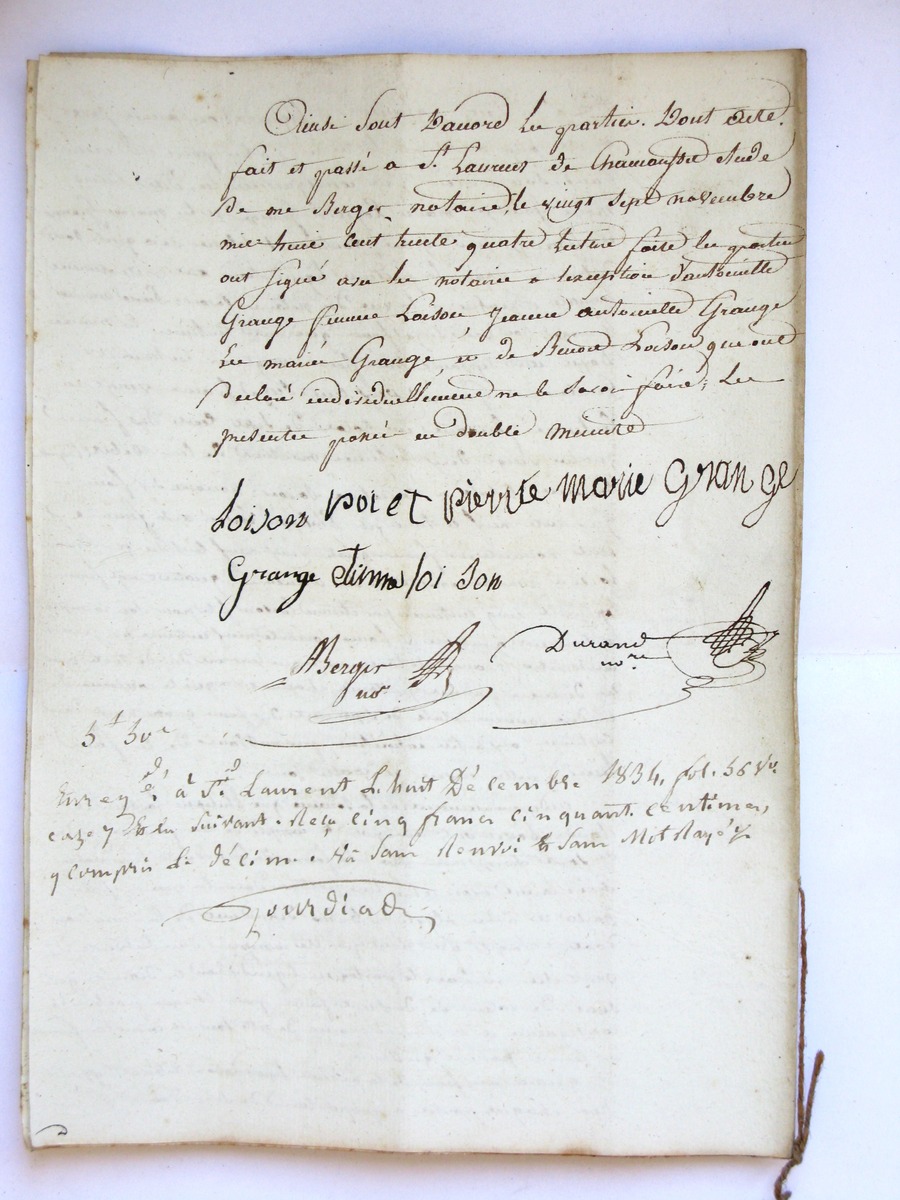 Ainsi sont D'accord les parties. Dont acte.
fait et passé a St Laurent de Chamousset étude
De me Berger notaire, le vingt sept novembre
mil huit cent trente quatre lecture faite les parties
ont signé avec les notaires a l'exception d'antoinette
Grange femme Loison, Jeanne antoinette Grange
Les mariés Grange et de Benoit Loison qui ont
Declaré individuellement ne le savoir faire; les
presentes passées en double minute
Loison poiet pierre marie Grange
Grange loi son
Berger nore
Durand nore
5f 50c
Enregé à St Laurent le huit Décembre 1834, fol. 56 Vo.
case 7 & la suivant. Reçu cinq francs cinquante centimes,
y compris le décime. sans Renvoi & sans Mot Rayé